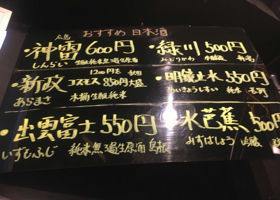 おすすめ 日本酒
広島
・神雷 600円
しんらい
・緑川 500円
みどりかわ
・新政 コスモス 850円
あらまさ 木桶生酛純米
・明鏡止水 550円
めいきょうしすい 純米 長野
・出雲富士 550円
いずもふじ 純米無濾過生原酒 島根
・水芭蕉 500円
みずばしょう